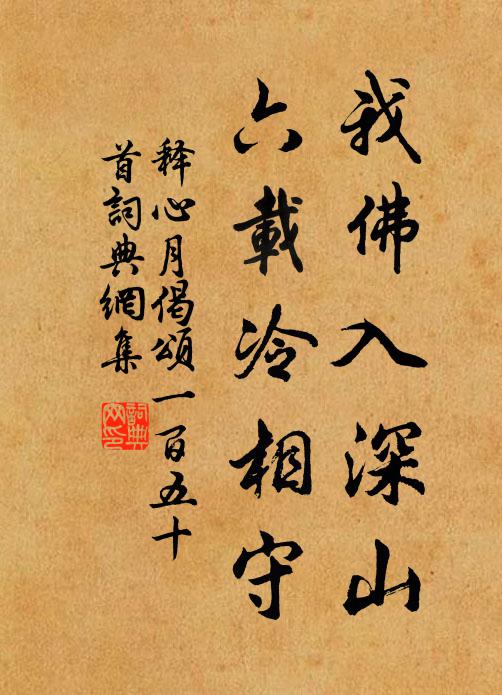 我佛入深山
六載冷相守
释心月偈頌一百五十
首詞典網集
詞典網印